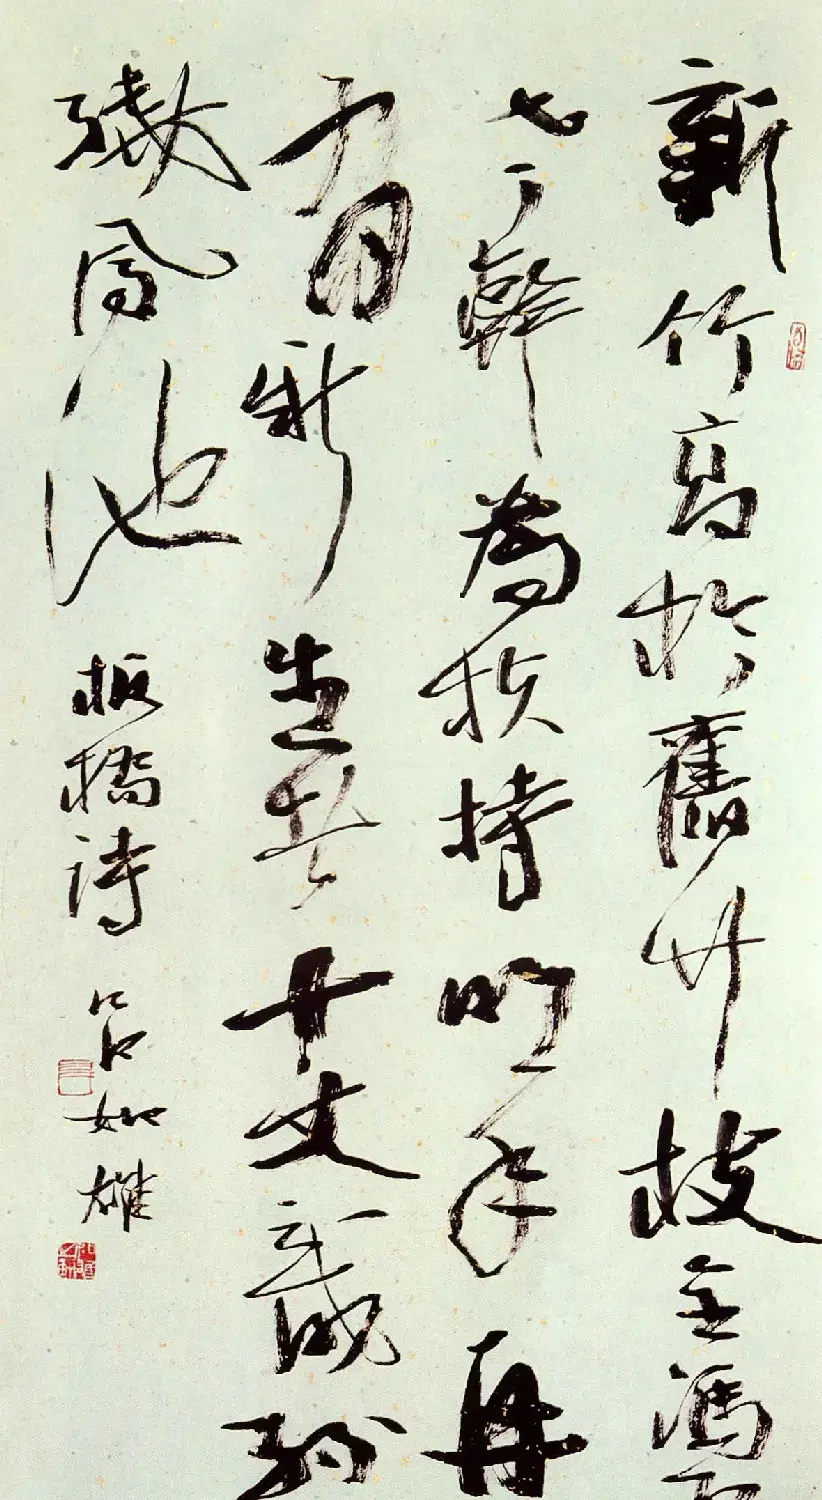 新竹高於舊竹枝全憑
幹為扶持明年再
有新生者十丈龍孫
繞鳳池
板橋詩 呂如雄